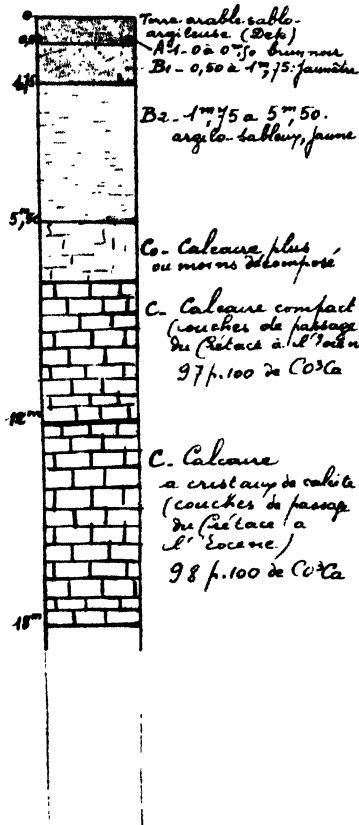 0
Terre arable sablo-
argileuse (Dep)
0,50
A1-0 à 0m,50 brun noir
B1- 0,50 à 1m,75: jaunâtre
1,75
B2- 1m,75 a 5m,50.
argilo-sableux, jaune
5m,50
Co- Calcaire plus
ou moins décomposé
C- Calcaire compact
(couches de passage
du Crétacé à l'Eocèn
97 p.100 de CO³Ca
12m
C- Calcaire
a cristaux de calcite
(couches de passage
du Crétacé a
l'Eocene)
98 p.100 de CO³Ca
18m